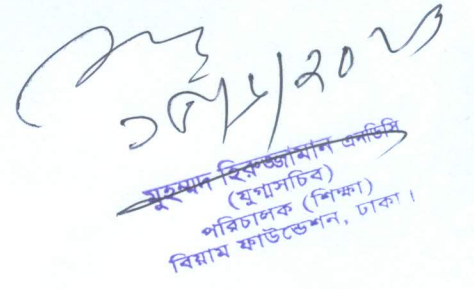 মুহম্মদ হিরুজ্জামান এনডিসি
(যুগ্মসচিব)
পরিচালক (শিক্ষা)
বিয়াম ফাউন্ডেশন, ঢাকা।